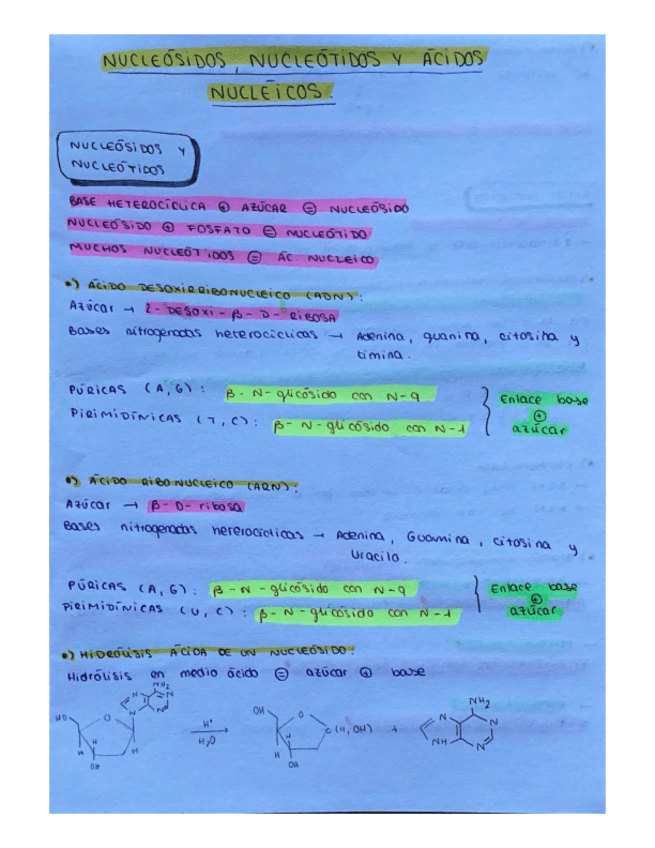 NUCLEÓSIDOS, NUCLEÓTIDOS Y ÁCIDOS
NUCLÉICOS.
NUCLEÓSIDOS Y
NUCLEÓTIDOS
BASE HETEROCÍCLICA ⊕ AZÚCAR ⊜ NUCLEÓSIDO
NUCLEÓSIDO ⊕ FOSFATO ⊜ NUCLEÓTIDO
MUCHOS NUCLEÓTIDOS ⊜ ÁC. NUCLEICO
•) ÁCIDO DESOXIRRIBONUCLEICO (ADN):
Azúcar → 2-DESOXI-β-D-RIBOSA
Bases nitrogenadas heterocíclicas → Adenina, guanina, citosina y
timina.
PÚRICAS (A, G): β-N-glicósido con N-9
PIRIMIDÍNICAS (T, C): β-N-glicósido con N-1
Enlace base
⊕
azúcar
•) ÁCIDO RIBONUCLEICO (ARN):
Azúcar → β-D-ribosa
Bases nitrogenadas hererocíclicas → Adenina, Guamina, citosina y
Uracilo.
PÚRICAS (A, G): β-N-glicósido con N-9
PIRIMIDÍNICAS (U, C): β-N-glicósido con N-1
Enlace base
⊕
azúcar
•) HIDRÓLISIS ÁCIDA DE UN NUCLEÓSIDO:
Hidrólisis en medio ácido ⊜ azúcar ⊕ base
NH₂
N N
N N
HO O
H H
OH
H⁺
H₂O
OH O
C(H, OH)
H
OH
+
NH₂
N N
NH N